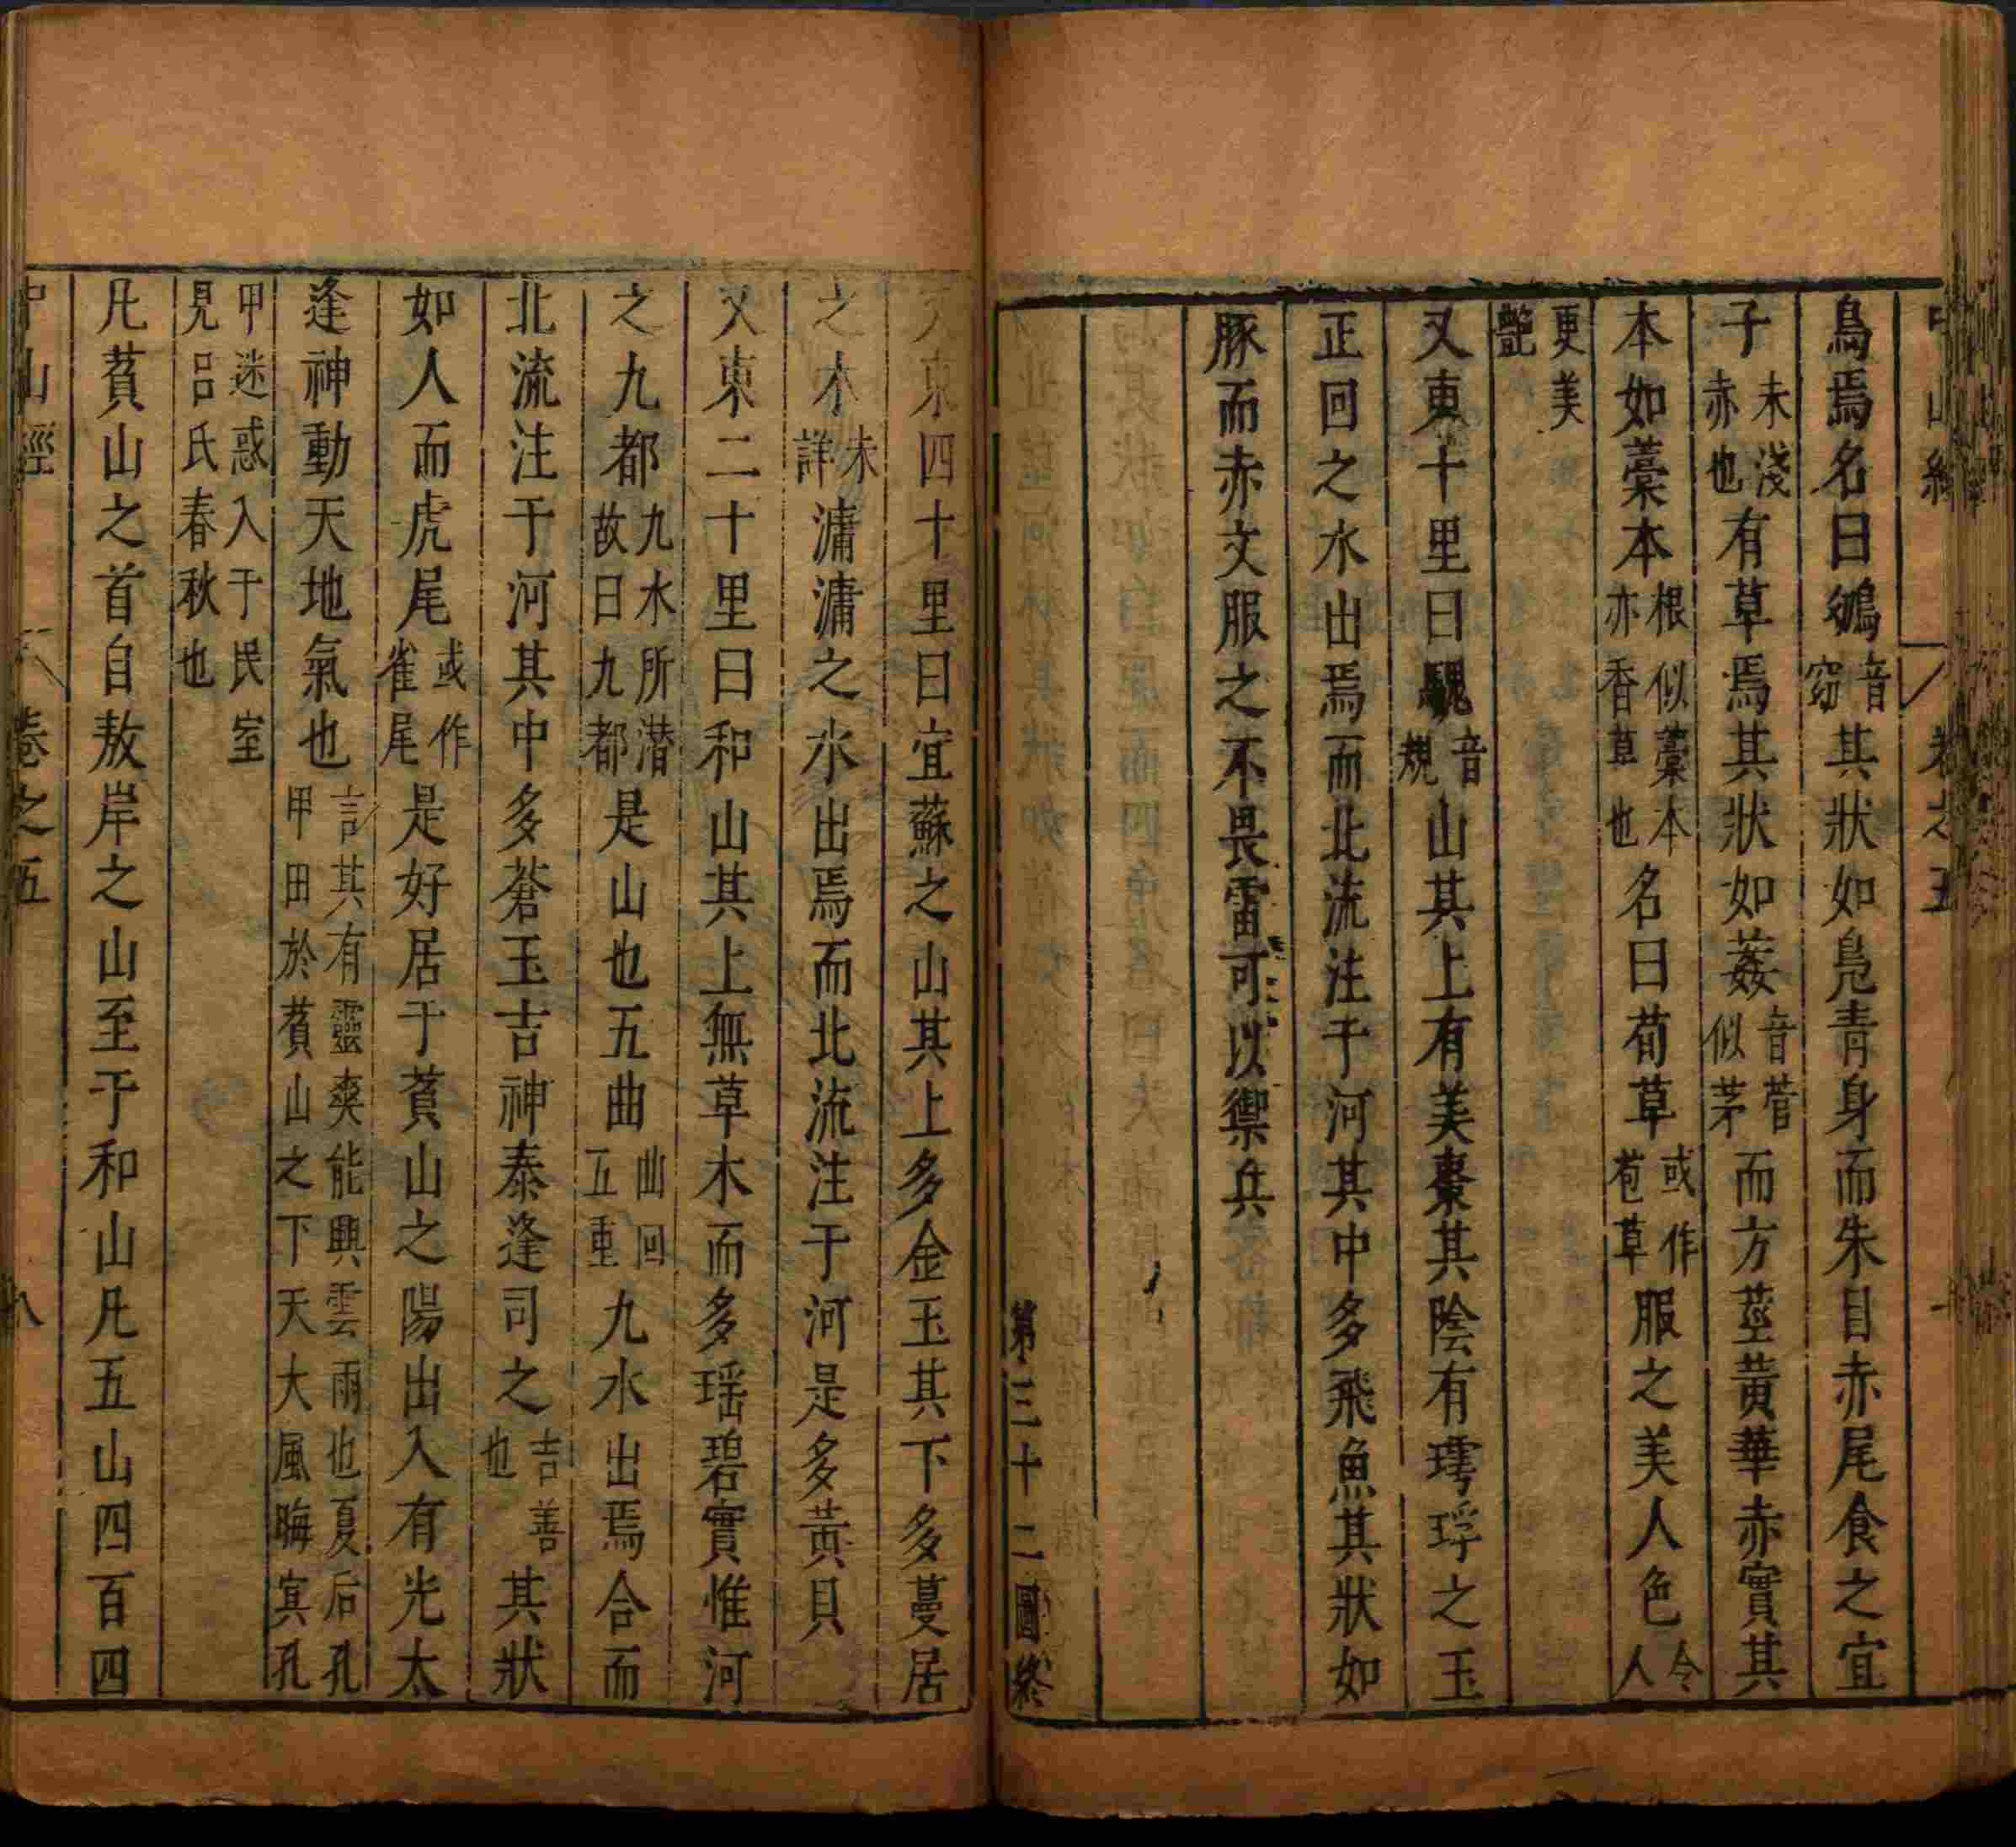 中山經 卷之五
鳥焉名曰鴢音窈其狀如鳧青身而朱目赤尾食之宜
子朱淺赤也有草焉其狀如葌音菅似茅而方莖黃華赤實其
本如藁本根似藁本亦香草也名曰荀草或作苞草服之美人色令人
更美艷
又東十里曰騩音規山其上有美棗其陰有㻬琈之玉
正回之水出焉而北流注于河其中多飛魚其狀如
豚而赤文服之不畏雷可以禦兵
第三十二圖終
又東四十里曰宜蘇之山其上多金玉其下多蔓居
之木未詳滽滽之水出焉而北流注于河是多黃貝
又東二十里曰和山其上無草木而多瑶碧實惟河
之九都九水所潛故曰九都是山也五曲曲回五重九水出焉合而
北流注于河其中多蒼玉吉神泰逢司之吉善也其狀
如人而虎尾或作雀尾是好居于萯山之陽出入有光太
逢神動天地氣也言其有靈爽能興雲雨也夏后孔甲田於萯山之下天大風晦冥孔
甲迷惑入于民室見呂氏春秋也
凡萯山之首自敖岸之山至于和山凡五山四百四
中山經 卷之五 八